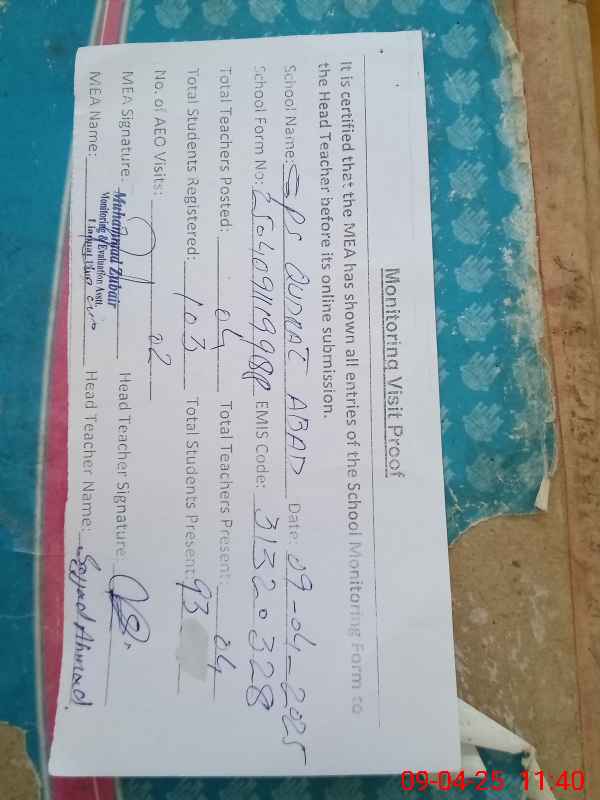 Monitoring Visit Proof
It is certified that the MEA has shown all entries of the School Monitoring Form to
the Head Teacher before its online submission.
School Name: GPS QUDRAT ABAD Date: 09-04-2025
School Form No: EMIS Code: 31320328
Total Teachers Posted: 04 Total Teachers Present: 04
Total Students Registered: 103 Total Students Present: 93
No. of AEO Visits: 02
MEA Signature: Head Teacher Signature:
Muhammad Zubair
Monitoring & Evaluation Asstt.
MEA Name: Head Teacher Name: Sajjad Ahmad
09-04-25 11:40